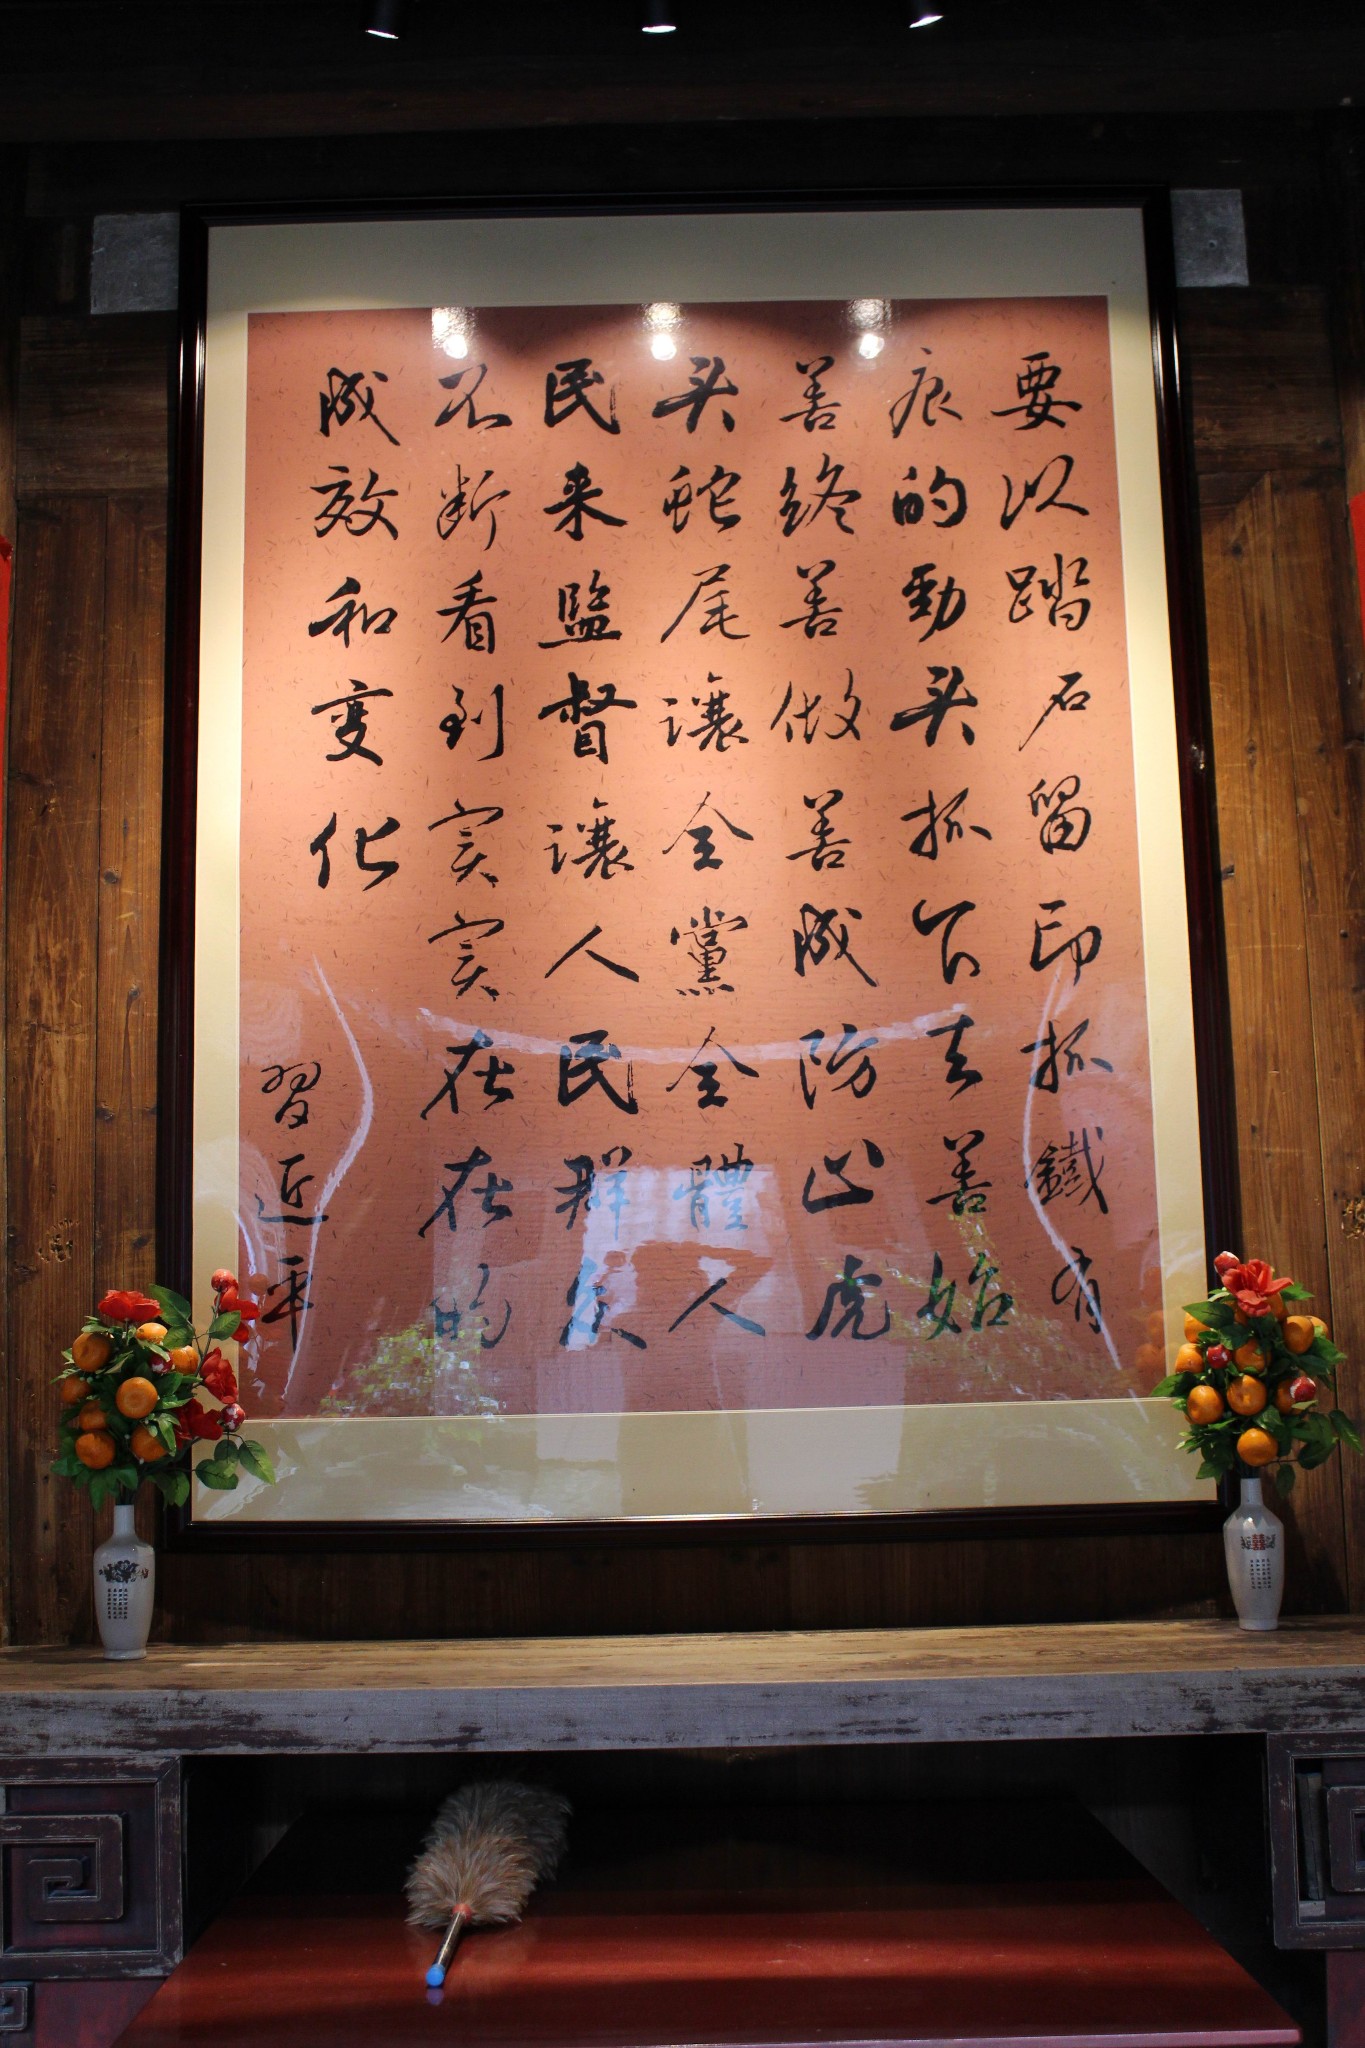 要以踏石留印抓鐵有
痕的勁头抓下去善始
善終善做善成防止虎
头蛇尾讓全黨全體人
民来監督讓人民群众
不断看到实实在在的
成效和变化
習近平